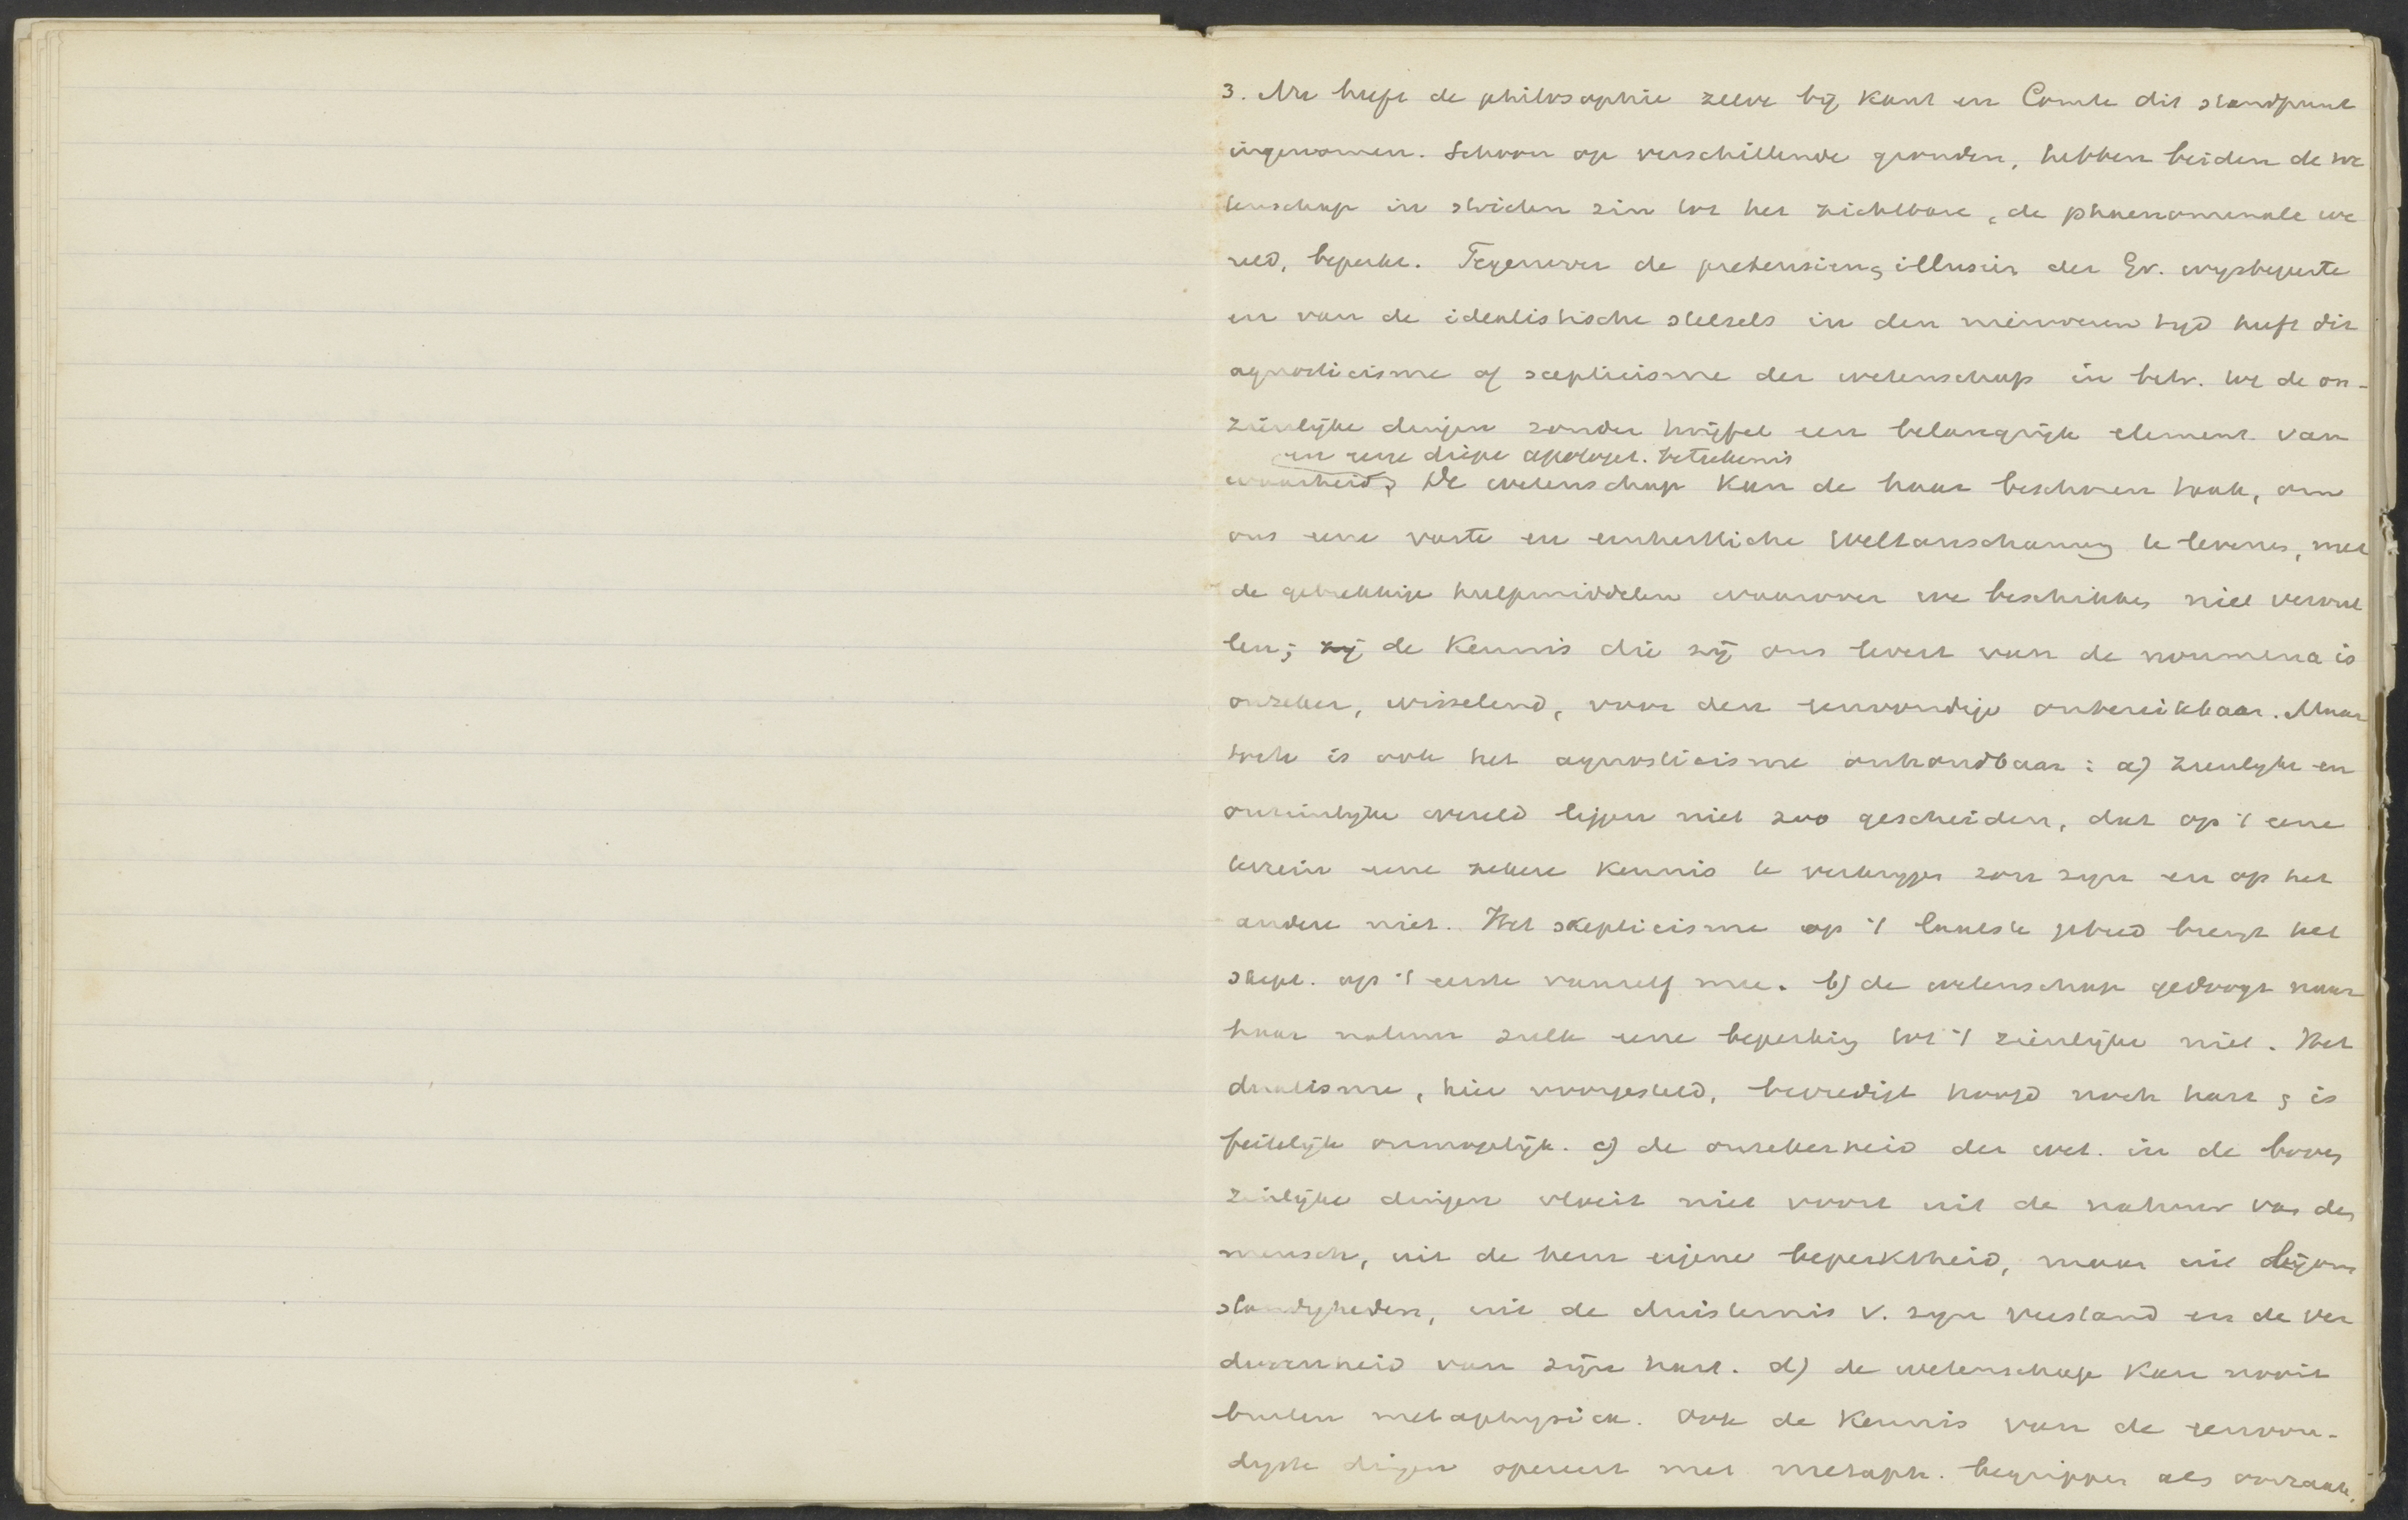 3. Nu heeft de philosophie zelve bij Kant en Comte dit standpunt
ingenomen. Schoon op verschillende gronden, hebben beiden de we
tenschap in strikten zin tot het zichtbare, de phaenomenale we
reld, beperkt. Tegenover de pretensien, illusiën der Gr. wijsbegeerte
en van de idealistische stelsels in den nieuweren tijd heeft dit
agnosticisme of scepticisme der wetenschap in betr. tot de on-
zienlijke dingen zonder twijfel een belangrijk element van
en eene diepe apologet. beteekenis
waarheid. De wetenschap kan de haar beschoren taak, om
ons eene vaste en einheitliche Weltanschauung te leveren, met
de gebrekkige hulpmiddelen waarover we beschikken niet vervul
len; zij de Kennis die zij ons levert van de noumena is
onzeker, wisselend, voor den eenvoudige onbereikbaar. Maar
toch is ook het agnosticisme onhoudbaar: a) zienlijke en
onzienlijke wereld liggen niet zoo gescheiden, dat op 't eene
terrein eene zekere Kennis te verkrijgen zou zijn en op het
andere niet. Het skepticisme op 't laatste gebied brengt het
skept. op 't eerste vanzelf mee. b) de wetenschap gedoogt naar
haar natuur zulk eene beperking tot 't zienlijke niet. Het
dualisme, hier voorgesteld, bevredigt hoofd noch hart, is
feitelijk onmogelijk. c) de onzekerheid der wet. in de boven
zinlijke dingen vloeit niet voort uit de natuur van den
mensch, uit de hem eigene beperktheid, maar uit bijom
standigheden, uit de duisternis v. zijn verstand en de ver
dorvenheid van zijn hart. d) de wetenschap Kan nooit
buiten metaphysica. Ook de Kennis van de eenvou-
digste dingen opereert met metaph. begrippen als oorzaak,